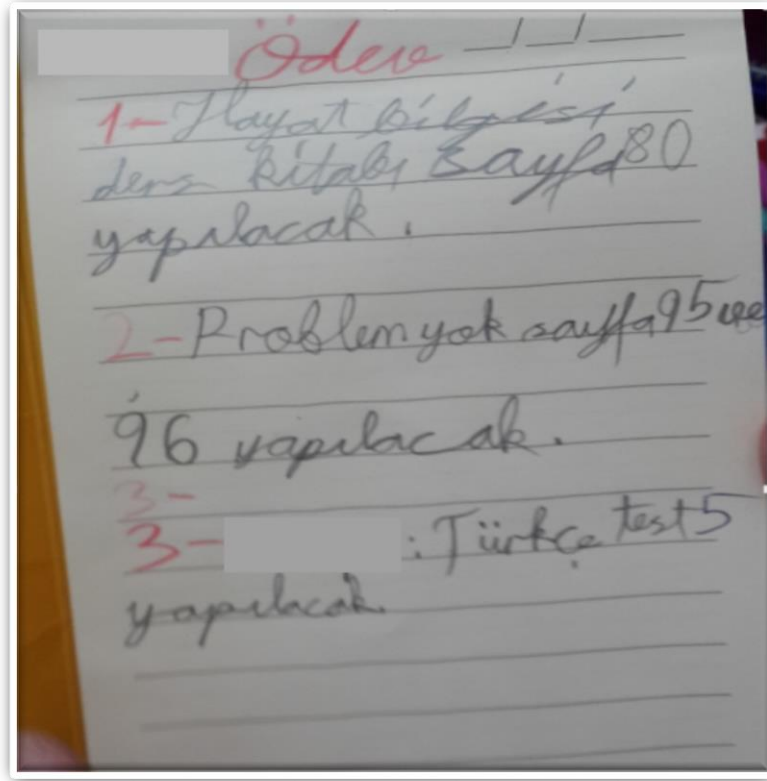 Ödev __/__/____
1- Hayat bilgisi
ders kitabı sayfa 80
yapılacak.
2- Problem yok sayfa 95 ve
96 yapılacak.
3-
3- : Türkçe test 5
yapılacak.